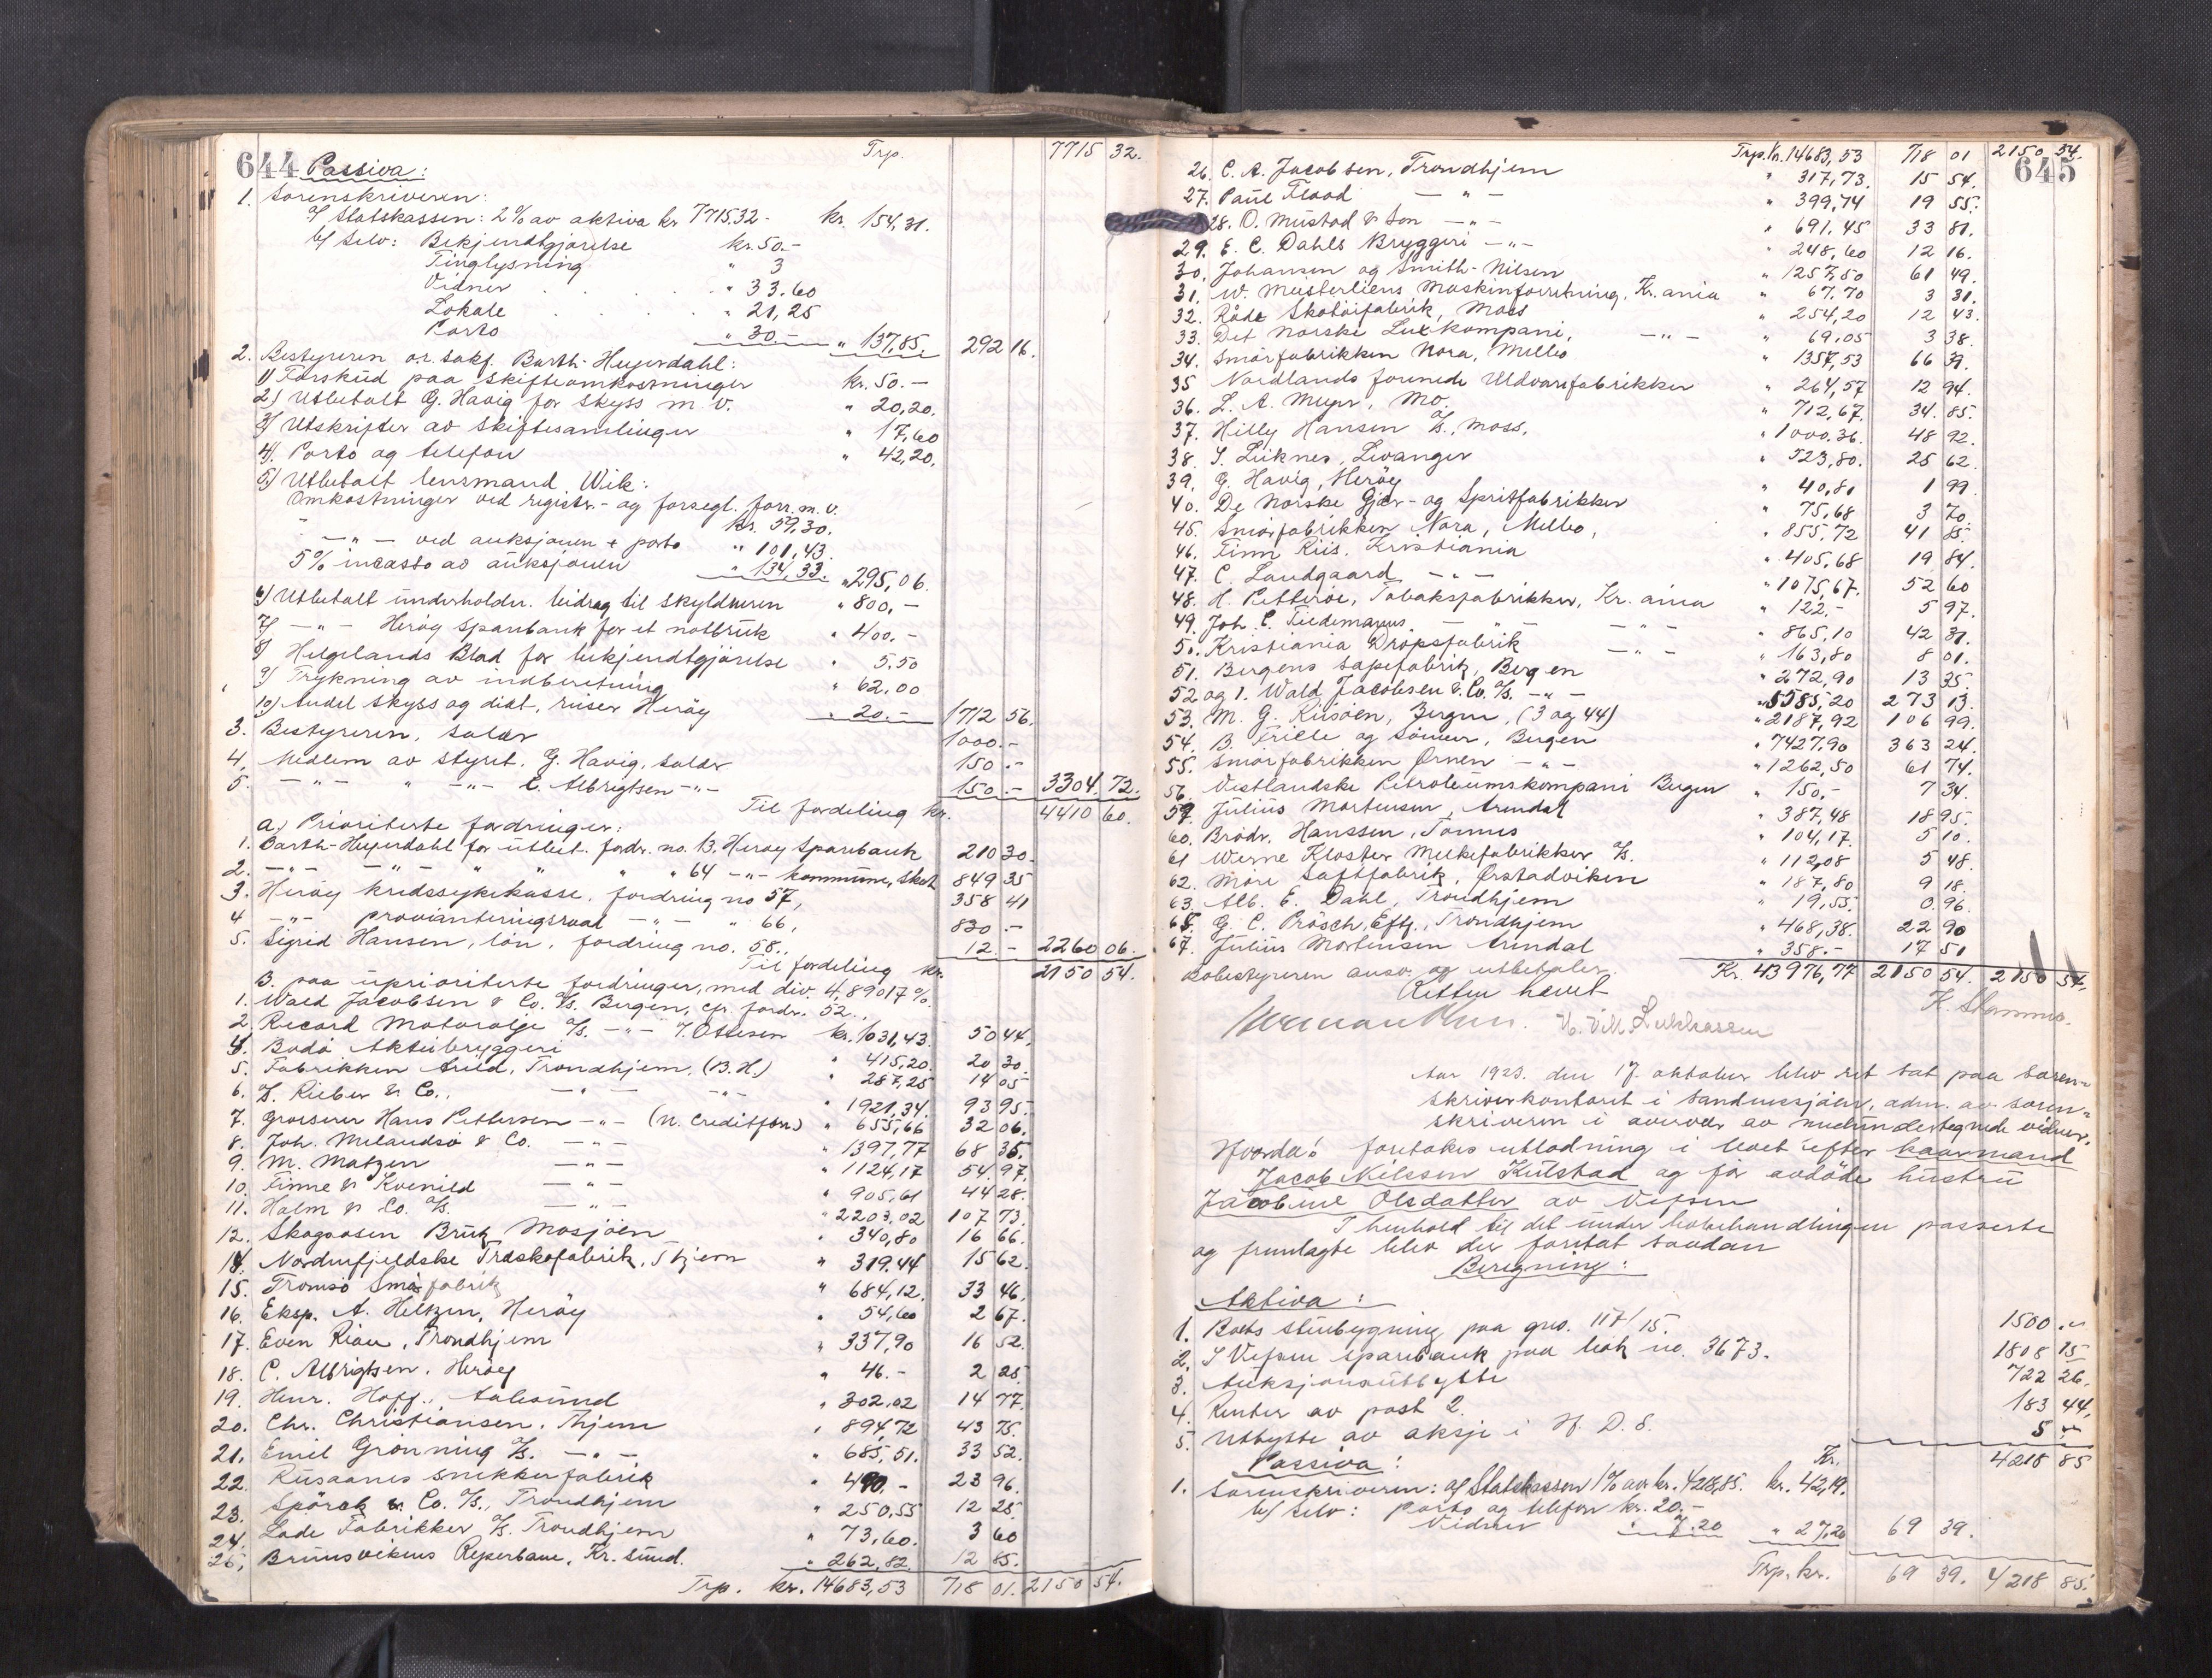 644 Passiva: Trp. 7715 32.
1. Sorenskriveren:
a/ Statskassen: 2% av aktiva kr 7715.32 - kr. 154,31.
b/ Selv: Bekjendtgjørelse kr. 50.-
Tinglysning " 3
Vidner " 33.60
Lokale " 21,25
Porto " 30.- " 137,85. 292 16.
2. Bestyreren o.r. sakf. Barth-Heyerdahl:
1) Forskud paa skifteomkostninger kr. 50.-
2) Utbetalt G. Havig for skyss m.v. " 20,20.
3) Utskrifter av skiftesamlinger " 17,60
4). Porto og telefon " 42,20.
5) Utbetalt lensmand Wik:
Omkostninger ved registr.- og forsegl. forr. m.v.
kr. 59,30.
" -"- ved auksjonen + porto " 101,43.
5% incasso av auksjonen " 134,33. " 295,06.
6) Utbetalt underholdn. bidrag til skyldneren " 800,-
7) -"- Herøy sparebank for et notbruk " 400.-
8) Helgelands Blad for bekjendtgjørelse " 5.50
9) Trykning av indberetning " 62.00
10) Andel skyss og diæt, reiser Herøy " 20.- 1712 56.
3. Bestyreren, salær 1000.-
4. Medlem av styret. G. Havig, salær 150.-
5. -"- " -"- C. Albrigtsen -"- 150.- 3304.72.
Til fordeling kr. 4410 60.
a.) Prioriterte fordringer:
1. Barth-Heyerdahl for utbet. fordr. no. 13, Herøy Sparebank 210 30.
2. -"- -"- " " " 64 -"- kommune, skat 849 35
3. Herøy kredssykekasse, fordring no 57, 358 41
4 -"- provianteringsraad -"- " 66, 830.-
5. Sigrid Hansen, løn, fordring no. 58., 12.- 2260 06.
Til fordeling kr. 2150 54.
B. paa uprioriterte fordringer, med div. 4,89017%.
1. Wald Jacobsen & Co. A/S. Bergen, cfr. fordr. 52.
2 Record Motorolje A/S. -"- J. Ottesen kr. 1031,43. 50 44.
4. Bodø Aktiebryggeri " 415,20. 20 30.
5. Fabrikken Arild, Trondhjem. (B.H.) " 287,25 14 05
6. A/S. Rieber & Co., -"- -"- " 1921,34. 93 95.
7. Grosserer Hans Pettersen -"- (N. Creditforr) " 655,66 32 06.
8. Joh. Melandsø & Co. -"- " 1397,77 68 35.
9. M. Matzen -"- " 1124,17 54.97.
10. Finne & Kvenild -"- " 905,61 44 28.
11. Holm & Co. A/S. -"- " 2203,02 107 73.
12. Skogaasen Bruk Mosjøen " 340,80 16 66.
14. Nordenfjeldske Træskofabrik, Thjem " 319,44 15 62.
15. Tromsø Smørfabrik " 684,12. 33 46.
16. Eksp. A. Heltzen, Herøy " 54,60 2 67.
17. Even Rian, Trondhjem " 337,90 16 52.
18. C. Albrigtsen. Herøy " 46.- 2 25.
19. Henr. Hoff., Aalesund " 302.02 14 77.
20. Chr. Christiansen. Thjem " 894,72 43 75.
21. Emil Grønning A/S. -"- " 685,51. 33 52.
22. Riisaanes snekkerfabrik " 490.- 23 96.
23. Spørck & Co. A/S., Trondhjem " 250,55 12 25.
24. Lade Fabrikker A/S. Trondhjem " 73,60. 3 60
25. Brunsvikens Reperbane, Kr. sund. " 262,82 12 85.
Trp. kr. 14683,53 718 01. 2150 54.
645 Trp. kr. 14683,53 718 01 2150 54.
26. C. A. Jacobsen, Trondhjem " 317,73. 15 54.
27. Paul Flood -"- " 399,74 19 55.
28. O. Mustad & Søn -"- " 691,45 33 81.
29. E. C. Dahls Bryggeri -"- " 248,60 12 16.
30. Johansen og Smith-Nilsen " 1257,50 61 49.
31. W. Meisterliens Maskinforretning, Kr.ania " 67.70 3 31.
32. Råde Skotøifabrik, Moss " 254,20 12 43.
33. Det Norske Luxkompani, -"- " 69,05 3 38.
34. Smørfabrikken Nora, Melbo " 1357,53 66 39.
35 Nordlands forenede Uldvarefabrikker " 264,57 12 94.
36. L. A. Meyer, Mo. " 712,67. 34.85.
37. Helly Hansen A/S., Moss. " 1000.36. 48 92.
38. S. Leiknes, Levanger " 523,80. 25 62.
39. G. Havig, Herøy " 40,81 1 99.
40. De Norske Gjær- og Spritfabrikker " 75,68 3 70.
45. Smørfabrikken Nora, Melbo, " 855,72 41 85.
46. Finn Riis. Kristiania " 405,68 19 84.
47. C. Landgaard -"- " 1075,67. 52 60
48. H. Petterøe, Tobaksfabrikker, Kr. ania " 122.- 5 97.
49. Joh. C. Tiedemanns -"- -"- " 865,10 42 31.
50. Kristiania Dropsfabrik -"- " 163,80 8 01.
51. Bergens Såpefabrik, Bergen " 272,90 13 35.
52 og 1. Wald Jacobsen & Co. A/S. -"- " 5585,20 273 13.
53. M. G. Riisøen, Bergen, (3 og 44) " 2187,92 106 99.
54. B. Friele og Sønner, Bergen " 7427,90 363 24.
55. Smørfabrikken Ørnen -"- " 1262,50 61 74.
56. Vestlandske Petroleumskompani Bergen " 150,- 7 34.
59. Julius Mortensen, Arendal " 387,48 18 95.
60. Brødr. Hanssen, Tonnes " 104,17. 5 10.
61 Werne Kloster Melkefabrikker A/S. " 112,08 5 48.
62. Møre Saftfabrik, Ørstadviken " 187,80 9 18.
63. Alb. E. Dahl, Trondhjem " 19,55. 0 96.
65. G. C. Prösch, Eftf., Trondhjem " 468,38. 22 90
67. Julius Mortensen Arendal " 358.- 17 51
Bobestyreren ansv. og utbetaler. Kr. 43976,77 2150 54. 2150 54.
Retten hævet
Aar 1923. den 17. oktober blev ret sat paa soren=
skriverkontoret i Sandnessjøen, adm. av soren=
skriveren i overvær av medundertegnede vidner.
Hvorda: foretokes utlodning i boet efter kaarmand
Jacob Nilssen Kulstad og før avdøde hustru
Jacobine Olsdatter av Vefsen
I henhold til det under bobehandlingen passerte
og fremlagte blev der foretat saadan
Beregning:
Aktiva:
1. Boets stuebygning paa gno. 117/15. 1500.-
2. I Vefsen sparebank paa bok no. 3673. 1808 15
3. Auksjonsutbytte 722 26.
4. Renter av post 2. 183 44.
5. Utbytte av aksje i N. D. S. 5 -
Kr. 4218 85
Passiva:
1. Sorenskriveren: a/ Statskassen 1% av kr. 4218,85. kr. 42,19.
b/ Selv: porto og telefon kr. 20.-
Vidner " 7.20 " 27,20 69 39.
Trp. kr. 69 39. 4218 85.